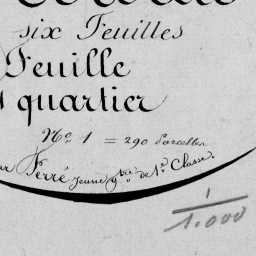 six Feuilles
Feuille
quartier
No. 1 = 290 Parcelles
Ferré jeune g.tre de 1.e Classe.
1
1.000